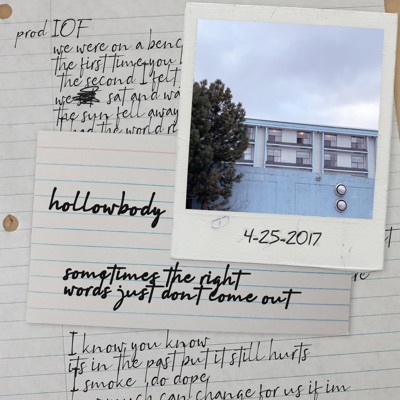 prod IOF
we were on a benc
the first time you
the second I felt
we sat and wa
the sun fell away
the world r
hollowbody
4-25-2017
sometimes the right
words just don't come out
I know you know
its in the past but it still hurts
I smoke do dope
much can change for us if im